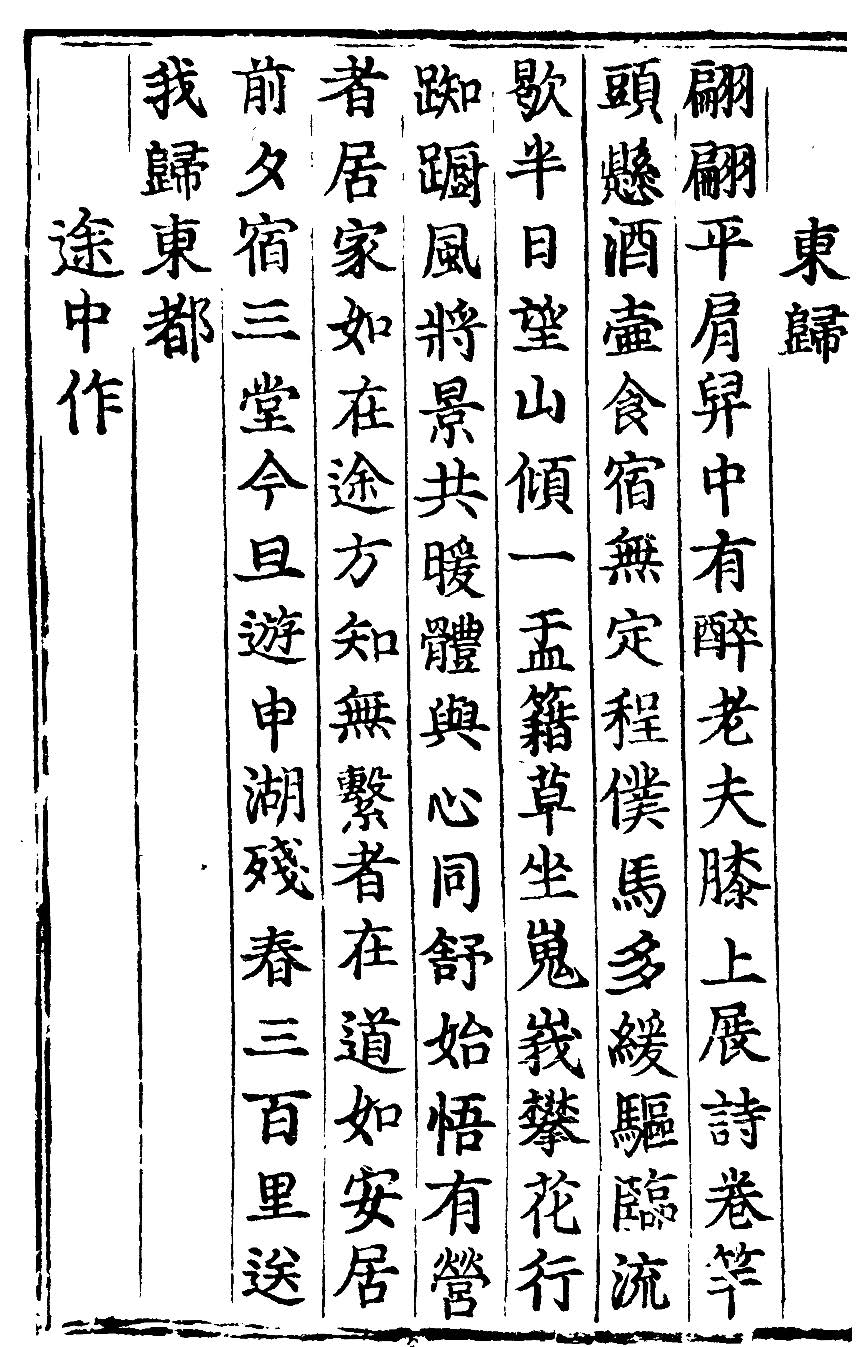 東歸
翩翩平肩舁中有醉老夫膝上展詩卷竿
頭懸酒壷食宿無定程僕馬多緩驅臨流
歇半日望山傾一盂籍草坐嵬峩攀花行
踟蹰風將景共暖體與心同舒始悟有營
者居家如在途方知無繫者在道如安居
前夕宿三堂今旦遊申湖殘春三百里送
我歸東都
途中作